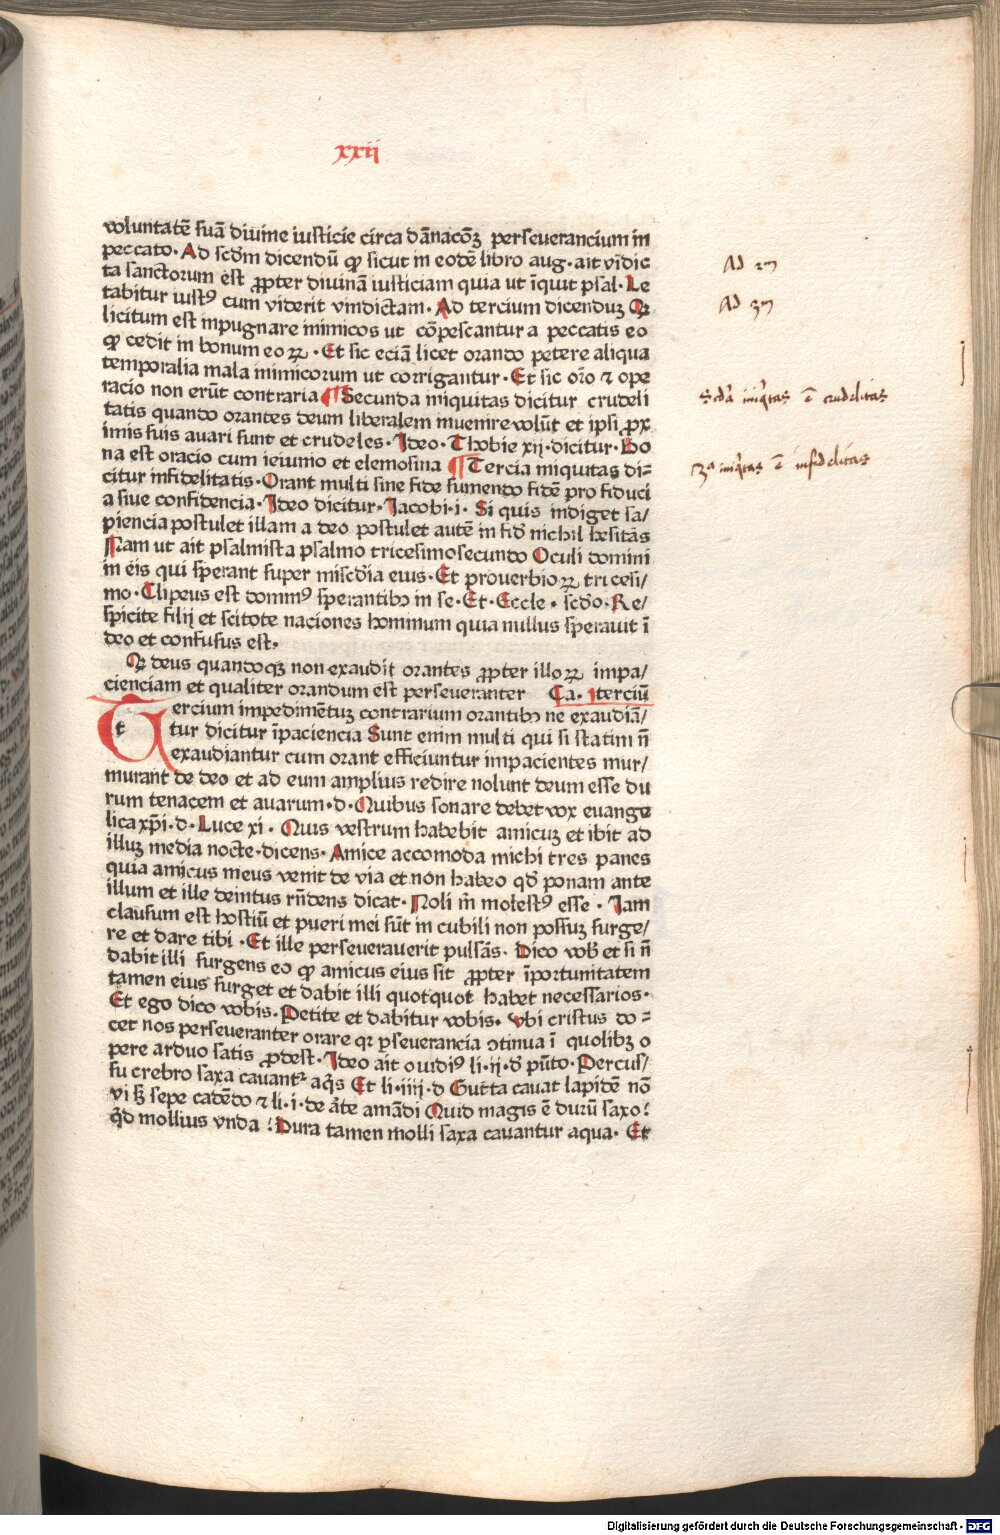 xxii
voluntatē suā divine iusticie circa dānacōꝫ perseverancium in
peccato· Ad scd̄m dicendū ꝙ sicut in eodē libro aug· ait vīdic
ta sanctorum est ꝓpter divinā iusticiam quia ut īquit psal· Le
tabitur iustꝰ cum viderit vindictam· Ad tercium dicenduꝫ Qꝛ
licitum est inpugnare inimicos ut cōpescantur a peccatis eo
ꝙ cedit in bonum eoꝝ · Et sic eciā licet orando petere aliqua
temporalia mala inimicorum ut corrigantur· Et sic orō ⁊ ope
racio non erūt contraria ¶ Secunda iniquitas dicitur crudeli
tatis quando orantes deum liberalem invenire volūt et ipsi ꝓx
imis suis avari sunt et crudeles· Ideo· Thobie xij· dicitur· Bo
na est oracio cum ieiunio et elemosina ¶ Tercia iniquitas di⸗
citur infidelitatis· Orant multi sine fide sumendo fidē pro fiduci
a sive confidencia· Ideo dicitur· Jacobi·i· Si quis indiget sa/
piencia postulet illam a deo postulet autē in fid̄ nichil hesitās
Nam ut ait psalmista psalmo tricesimosecundo Oculi domini
in eis qui sperant super misc̄dia eius· Et proverbioꝝ tricesi/
mo· Clipeus est dominꝰ sperantibꝫ in se· Et· Eccle · scd̄o· Re/
spicite filij et scitote naciones hominum quia nullus speravit ī
deo et confusus est·
Qꝛ deus quandoqꝫ non exaudit orantes ꝓpter illoꝝ impa/
cienciam et qualiter orandum est perseveranter Ca· terciū
Tercium impedimētuꝫ contrarium orantibꝫ ne exaudiā/
tur dicitur īpaciencia Sunt enim multi qui si statim n̄
exaudiantur cum orant efficiuntur impacientes mur/
murant de deo et ad eum amplius redire nolunt deum esse du
rum tenacem et avarum·d· Quibus sonare debet vox euange
lica xp̄i·d· Luce xi · Quis vestrum habebit amicuꝫ et ibit ad
illuꝫ media nocte· dicens· Amice accomoda michi tres panes
quia amicus meus venit de via et non habeo qd̄ ponam ante
illum et ille deintus rn̄dens dicat· Noli m̄ molestꝰ esse · Iam
clausum est hostiū et pueri mei sūt in cubili non possuꝫ surge/
re et dare tibi · Et ille perseveraverit pulsās· Dico vob̄ et si n̄
dabit illi surgens eo ꝙ amicus eius sit ꝓpter īportunitatem
tamen eius surget et dabit illi quotquot habet necessarios·
Et ego dico vobis· Petite et dabitur vobis· vbi cristus do⸗
cet nos perseveranter orare qꝛ ꝑseverancia ↄtinua ī quolibꝫ o
pere arduo satis ꝓdest· Ideo ait ouidiꝰ li·ij·d̄ pūto· Percus/
su crebro saxa cavantᷣ aq̄s Et li·iiij·d̄ Gutta cavat lapidē nō
vi sꝫ sepe cadēdo ⁊ li·i·de āte amādi Quid magis ē durū saxo?
qͥd mollius vnda ? Dura tamen molli saxa cavantur aqua· Et
Ad 2m
Ad 3m
scd̄a iniqͥtas ē crudelitas
3ᵃ iniqͥtas ē infidelitas
Digitalisierung gefördert durch die Deutsche Forschungsgemeinschaft - DFG